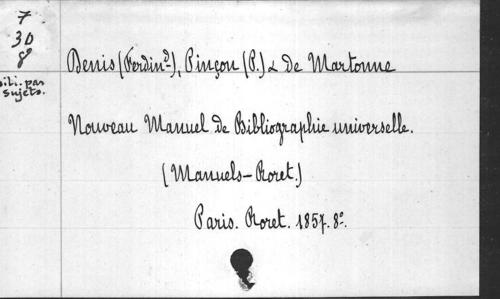 7
30
8
bili. par
sujets.
Denis (Ferdin^d.), Pinçon (P.) & de Martonne
Nouveau Manuel de Bibliographie universelle.
(Manuels-Roret.)
Paris. Roret. 1857. 8°.